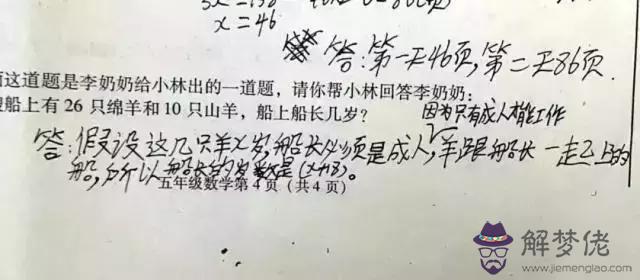 x=46
答:第一天46页,第二天86页.
这道题是李奶奶给小林出的一道题,请你帮小林回答李奶奶:
船上有 26 只绵羊和 10 只山羊,船上船长几岁?
因为只有成人才能工作
答:假设这几只羊x岁,船长必须是成人,羊跟船长一走上的
船,所以船长的岁数是(x+18)。
五年级数学第 4 页(共 4 页)
解梦佬
www.jiemenglao.com